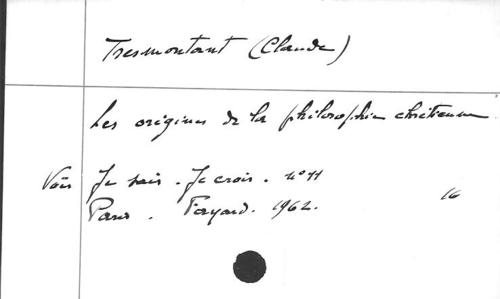 Tresmontant (Claude)
Les origines de la philosophie chrétienne.
Voir Je sais. Je crois. n° 11
Paris. Fayard. 1962. 16